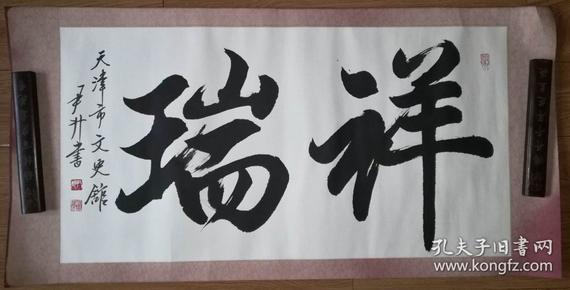 祥瑞
天津市文史館
尹升書
孔夫子旧书网
www.kongfz.com